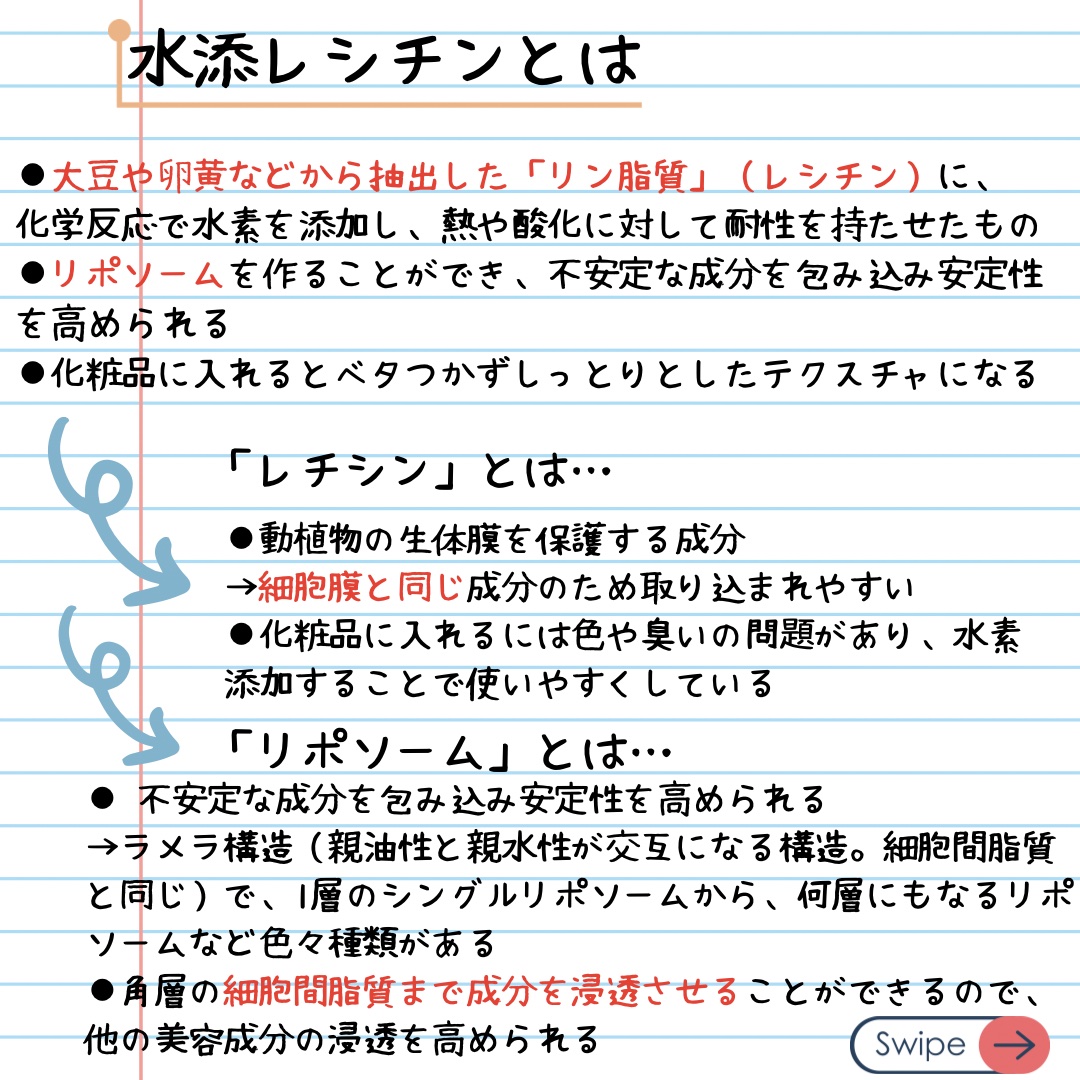 水添レシチンとは
●大豆や卵黄などから抽出した「リン脂質」（レシチン）に、
化学反応で水素を添加し、熱や酸化に対して耐性を持たせたもの
●リポソームを作ることができ、不安定な成分を包み込み安定性
を高められる
●化粧品に入れるとベタつかずしっとりとしたテクスチャになる
「レチシン」とは…
●動植物の生体膜を保護する成分
→細胞膜と同じ成分のため取り込まれやすい
●化粧品に入れるには色や臭いの問題があり、水素
添加することで使いやすくしている
「リポソーム」とは…
● 不安定な成分を包み込み安定性を高められる
→ラメラ構造（親油性と親水性が交互になる構造。細胞間脂質
と同じ）で、1層のシングルリポソームから、何層にもなるリポ
ソームなど色々種類がある
●角層の細胞間脂質まで成分を浸透させることができるので、
他の美容成分の浸透を高められる
Swipe